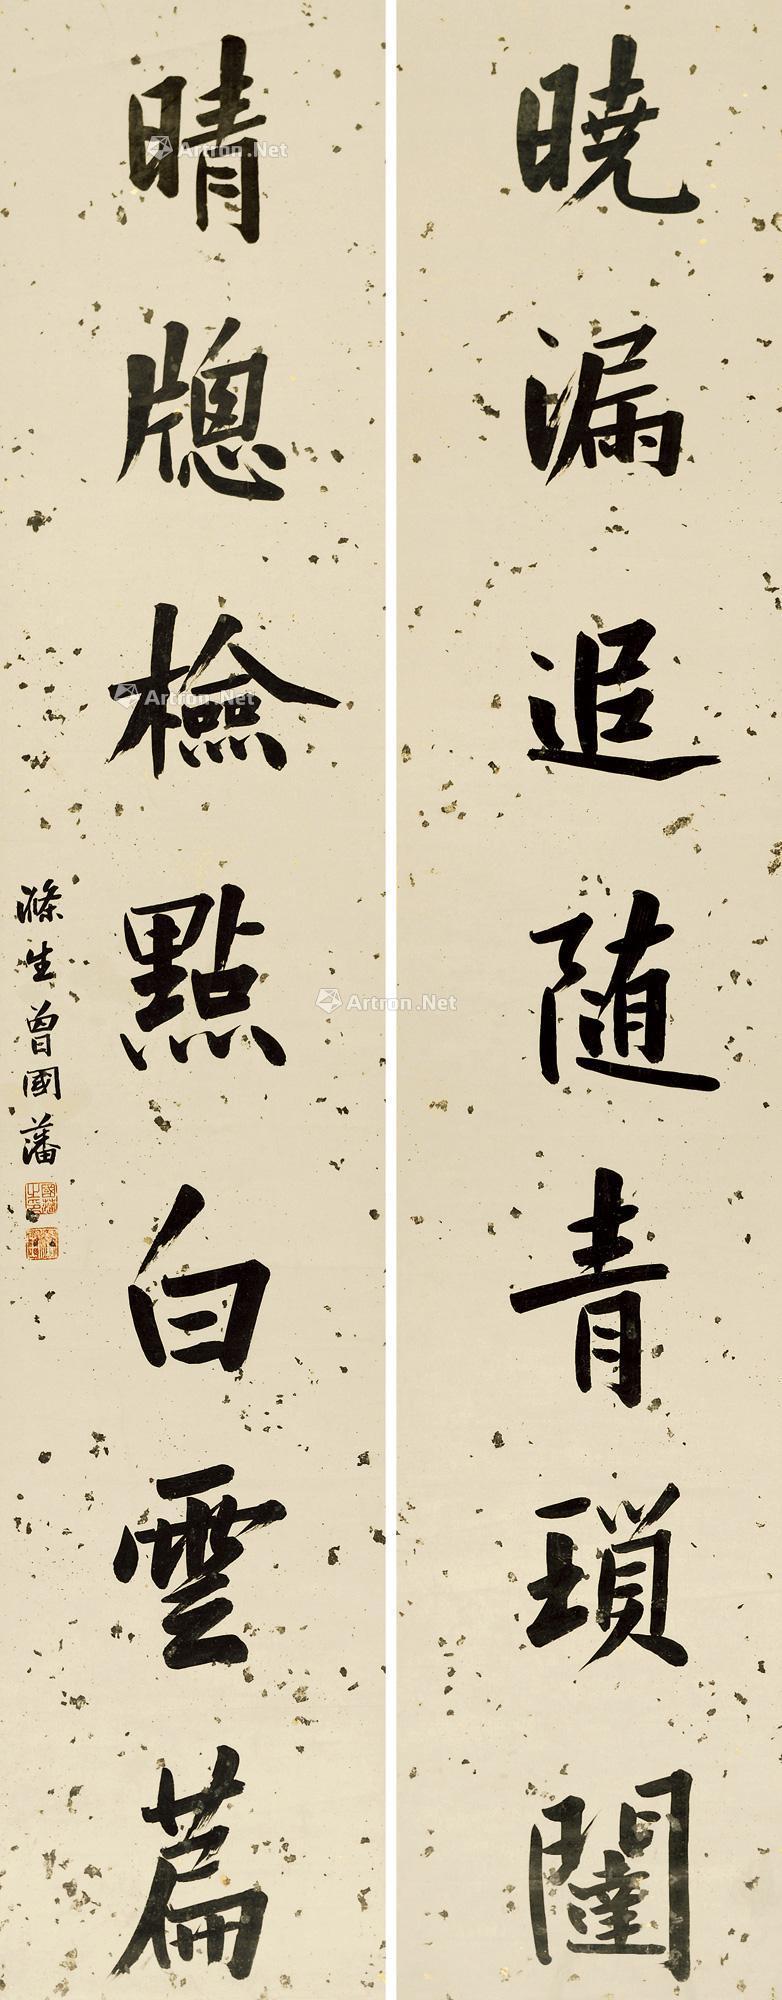 曉漏追随青瑣闥
晴牕檢點白雲篇
滌生曾國藩
Artron.Net
Artron.Net
Artron.Net